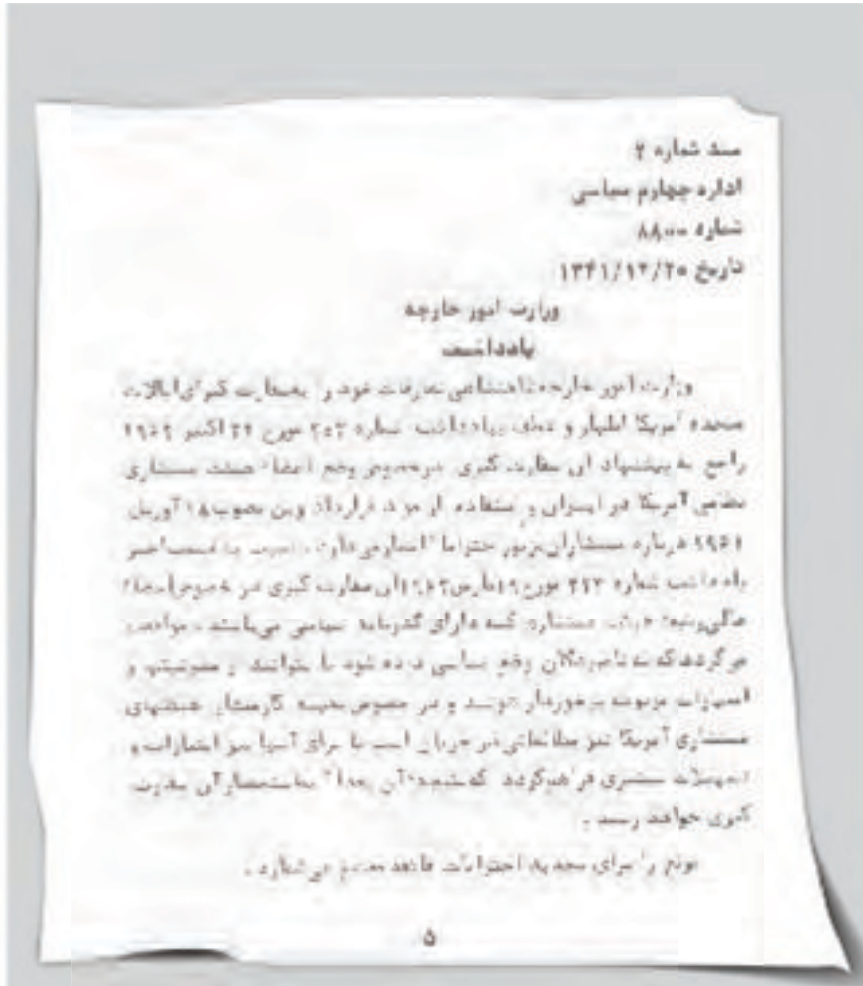 سند شماره ۲
اداره چهارم سیاسی
شماره ۸۸۰۰
تاریخ ۱۳۴۱/۱۲/۲۰
وزارت امور خارجه
یادداشت
وزارت امور خارجه شاهنشاهی تعارفات خود را بسفارت کبرای ایالات
متحده آمریکا اظهار و عطف بیادداشت شماره مورخ اکتبر
راجع به پیشنهاد آن سفارت کبری درخصوص وضع اعضاء هیئت مستشاری
نظامی آمریکا در ایران و استفاده از قرارداد وین مصوب ۱۸ آوریل
درباره مستشاران مزبور احتراما اشعار می‌دارد، قسمت اخیر
یادداشت شماره مورخ مارس آن سفارت کبری در خصوص اعضاء
عالی‌رتبه هیئت مستشاری که دارای گذرنامه سیاسی می‌باشند، موافقت
می‌گردد که به نامبردگان وضع سیاسی داده شود تا بتوانند از مصونیتها و
امتیازات مربوطه برخوردار شوند و در خصوص بقیه کارمندان هیئتهای
مستشاری آمریکا نیز مطالعاتی در جریان است تا برای آنها نیز امتیازات و
تسهیلات بیشتری فراهم گردد که نتیجه آن بعدا باستحضار آن سفارت
کبری خواهد رسید.
موقع را برای تجدید احترامات فائقه مغتنم می‌شمارد.
۵